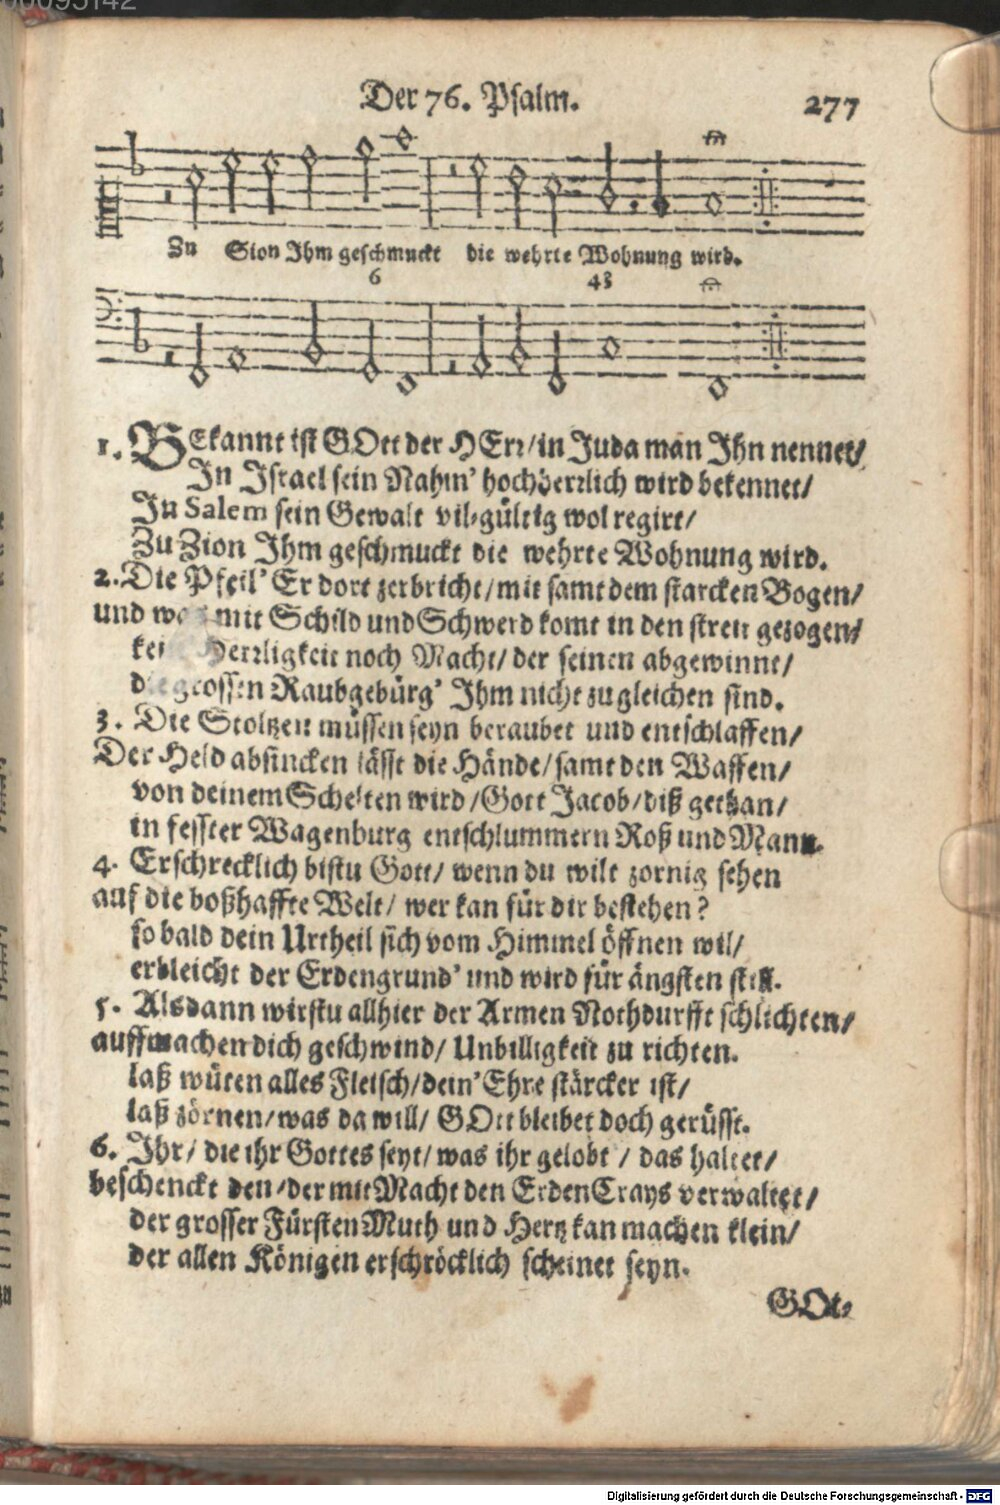 Der 76. Psalm. 277
Zu Sion Ihm geschmuckt die wehrte Wohnung wird.
6 43
1. BEkannt ist GOtt der HErr/in Juda man Ihn nennet/
In Israel sein Nahm' hochherrlich wird bekennet/
In Salem sein Gewalt vil-gültig wol regirt/
Zu Zion Ihm geschmuckt die wehrte Wohnung wird.
2. Die Pfeil' Er dort zerbricht/mit samt dem starcken Bogen/
und was mit Schild und Schwerd komt in den streit gezogen/
kein Herrligkeit noch Macht/ der seinen abgewinnt/
die grossen Raubgebürg' Ihm nicht zugleichen sind.
3. Die Stoltzen müssen seyn beraubet und entschlaffen/
Der Held absincken lässt die Hände/samt den Waffen/
von deinem Schelten wird/Gott Jacob/diß gethan/
in fesster Wagenburg entschlummern Roß und Mann.
4. Erschrecklich bistu Gott/ wenn du wilt zornig sehen
auf die boßhaffte Welt/ wer kan für dir bestehen?
so bald dein Urtheil sich vom Himmel öffnen wil/
erbleicht der Erdengrund' und wird für ängsten still.
5. Alsdann wirstu allhier der Armen Nothdurfft schlichten/
auffmachen dich geschwind/ Unbilligkeit zu richten.
laß wüten alles Fleisch/dein' Ehre stärcker ist/
laß zörnen/was da will/ GOtt bleibet doch gerüsst.
6. Ihr/ die ihr Gottes seyt/ was ihr gelobt / das haltet/
beschenckt den/der mit Macht den ErdenCrays verwaltet/
der grosser Fürsten Muth und Hertz kan machen klein/
der allen Königen erschröcklich scheinet seyn.
GOt-
Digitalisierung gefördert durch die Deutsche Forschungsgemeinschaft - DFG